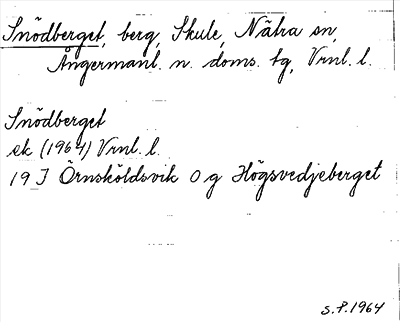 Snödberget, berg, Skule, Nätra sn,
Ångermanl. n. doms. tg, Vrnl. l.
Snödberget
ek (1964) Vrnl. l.
19 J Örnsköldsvik O g Högsvedjeberget
S.P. 1964